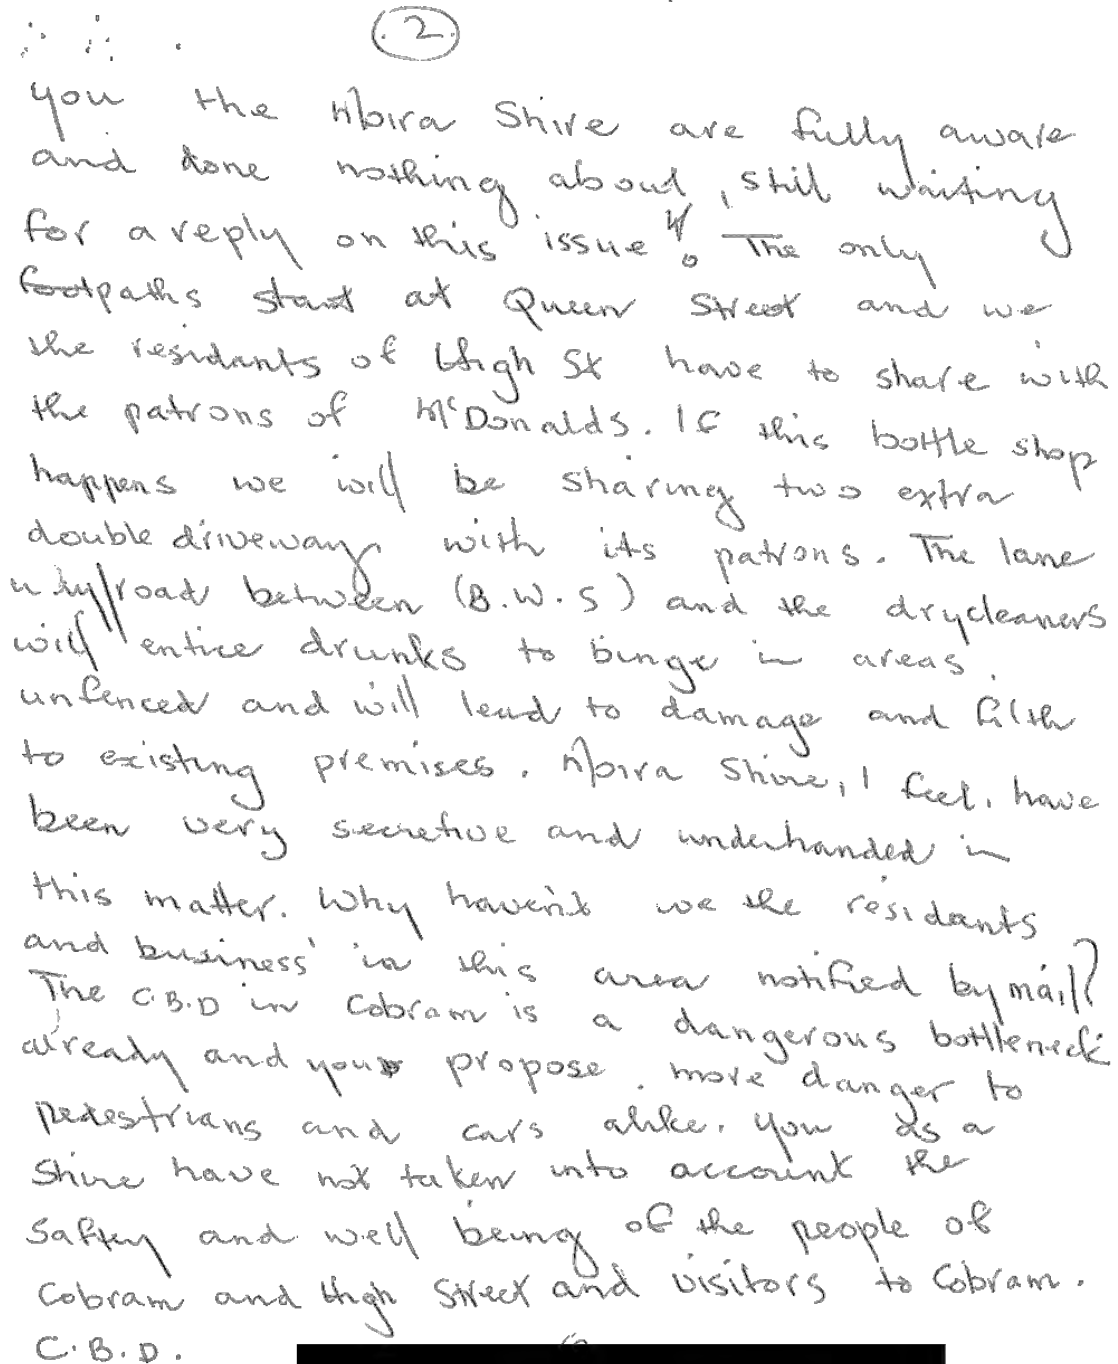 2
you the Moira Shire are fully aware
and done nothing about, still waiting
for a reply on this issue. The only
footpaths start at Queen Street and we
the residants of High St have to share with
the patrons of McDonalds. If this bottle shop
happens we will be sharing two extra
double driveways with its patrons. The lane
road between (B.W.S) and the drycleaners
will entice drunks to binge in areas
unfenced and will lead to damage and filth
to existing premises. Moira Shire, I feel, have
been very secretive and underhanded in
this matter. Why haven't we the residants
and business' in this area notified by mail?
The C.B.D in Cobram is a dangerous bottleneck
already and you propose more danger to
pedestrians and cars alike. You as a
Shire have not taken into account the
saftey and well being of the people of
Cobram and High Street and visitors to Cobram.
C.B.D.